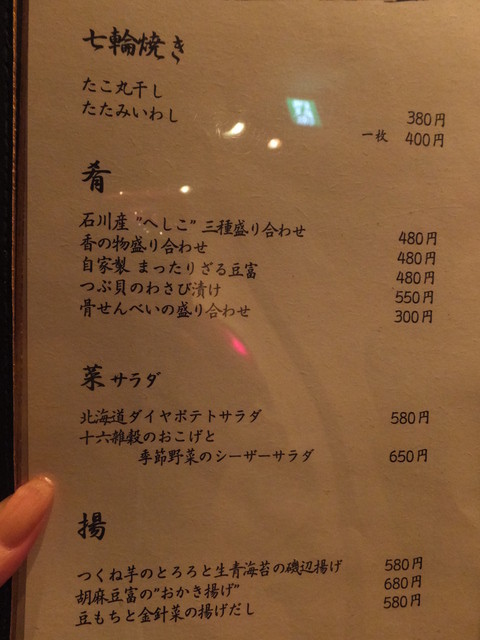 七輪焼き
たこ丸干し 380円
たたみいわし 一枚 400円
肴
石川産 "へしこ" 三種盛り合わせ 480円
香の物盛り合わせ 480円
自家製 まったりざる豆富 480円
つぶ貝のわさび漬け 550円
骨せんべいの盛り合わせ 300円
菜 サラダ
北海道ダイヤポテトサラダ 580円
十六雑穀のおこげと
季節野菜のシーザーサラダ 650円
揚
つくね芋のとろろと生青海苔の磯辺揚げ 580円
胡麻豆富の"おかき揚げ" 680円
豆もちと金針菜の揚げだし 580円